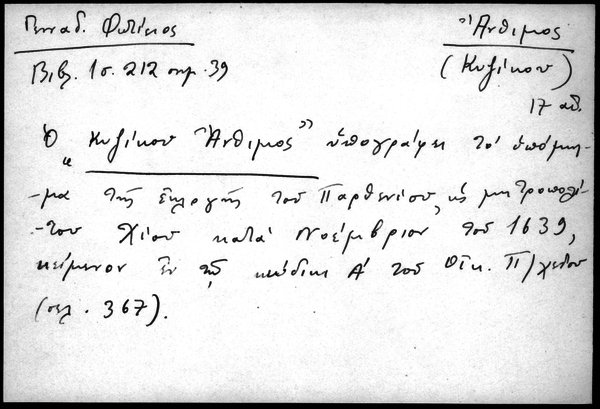 Γενναδ. Φωτίειος
Ἄνθιμος
Βιβλ. 1 σ. 212 σημ. 39
(Κυζίκου)
17 αἰ.
Ὁ "Κυζίκου Ἄνθιμος" ὑπογράφει τὸ ὑπόμνη-
-μα τῆς ἐκλογῆς τοῦ Παρθενίου, ὡς μητροπολί-
-του Χίου κατὰ Νοέμβριον τοῦ 1639,
κείμενον ἐν τῷ κώδικι Α' τοῦ Οἰκ. Π/χείου
(σελ. 367).